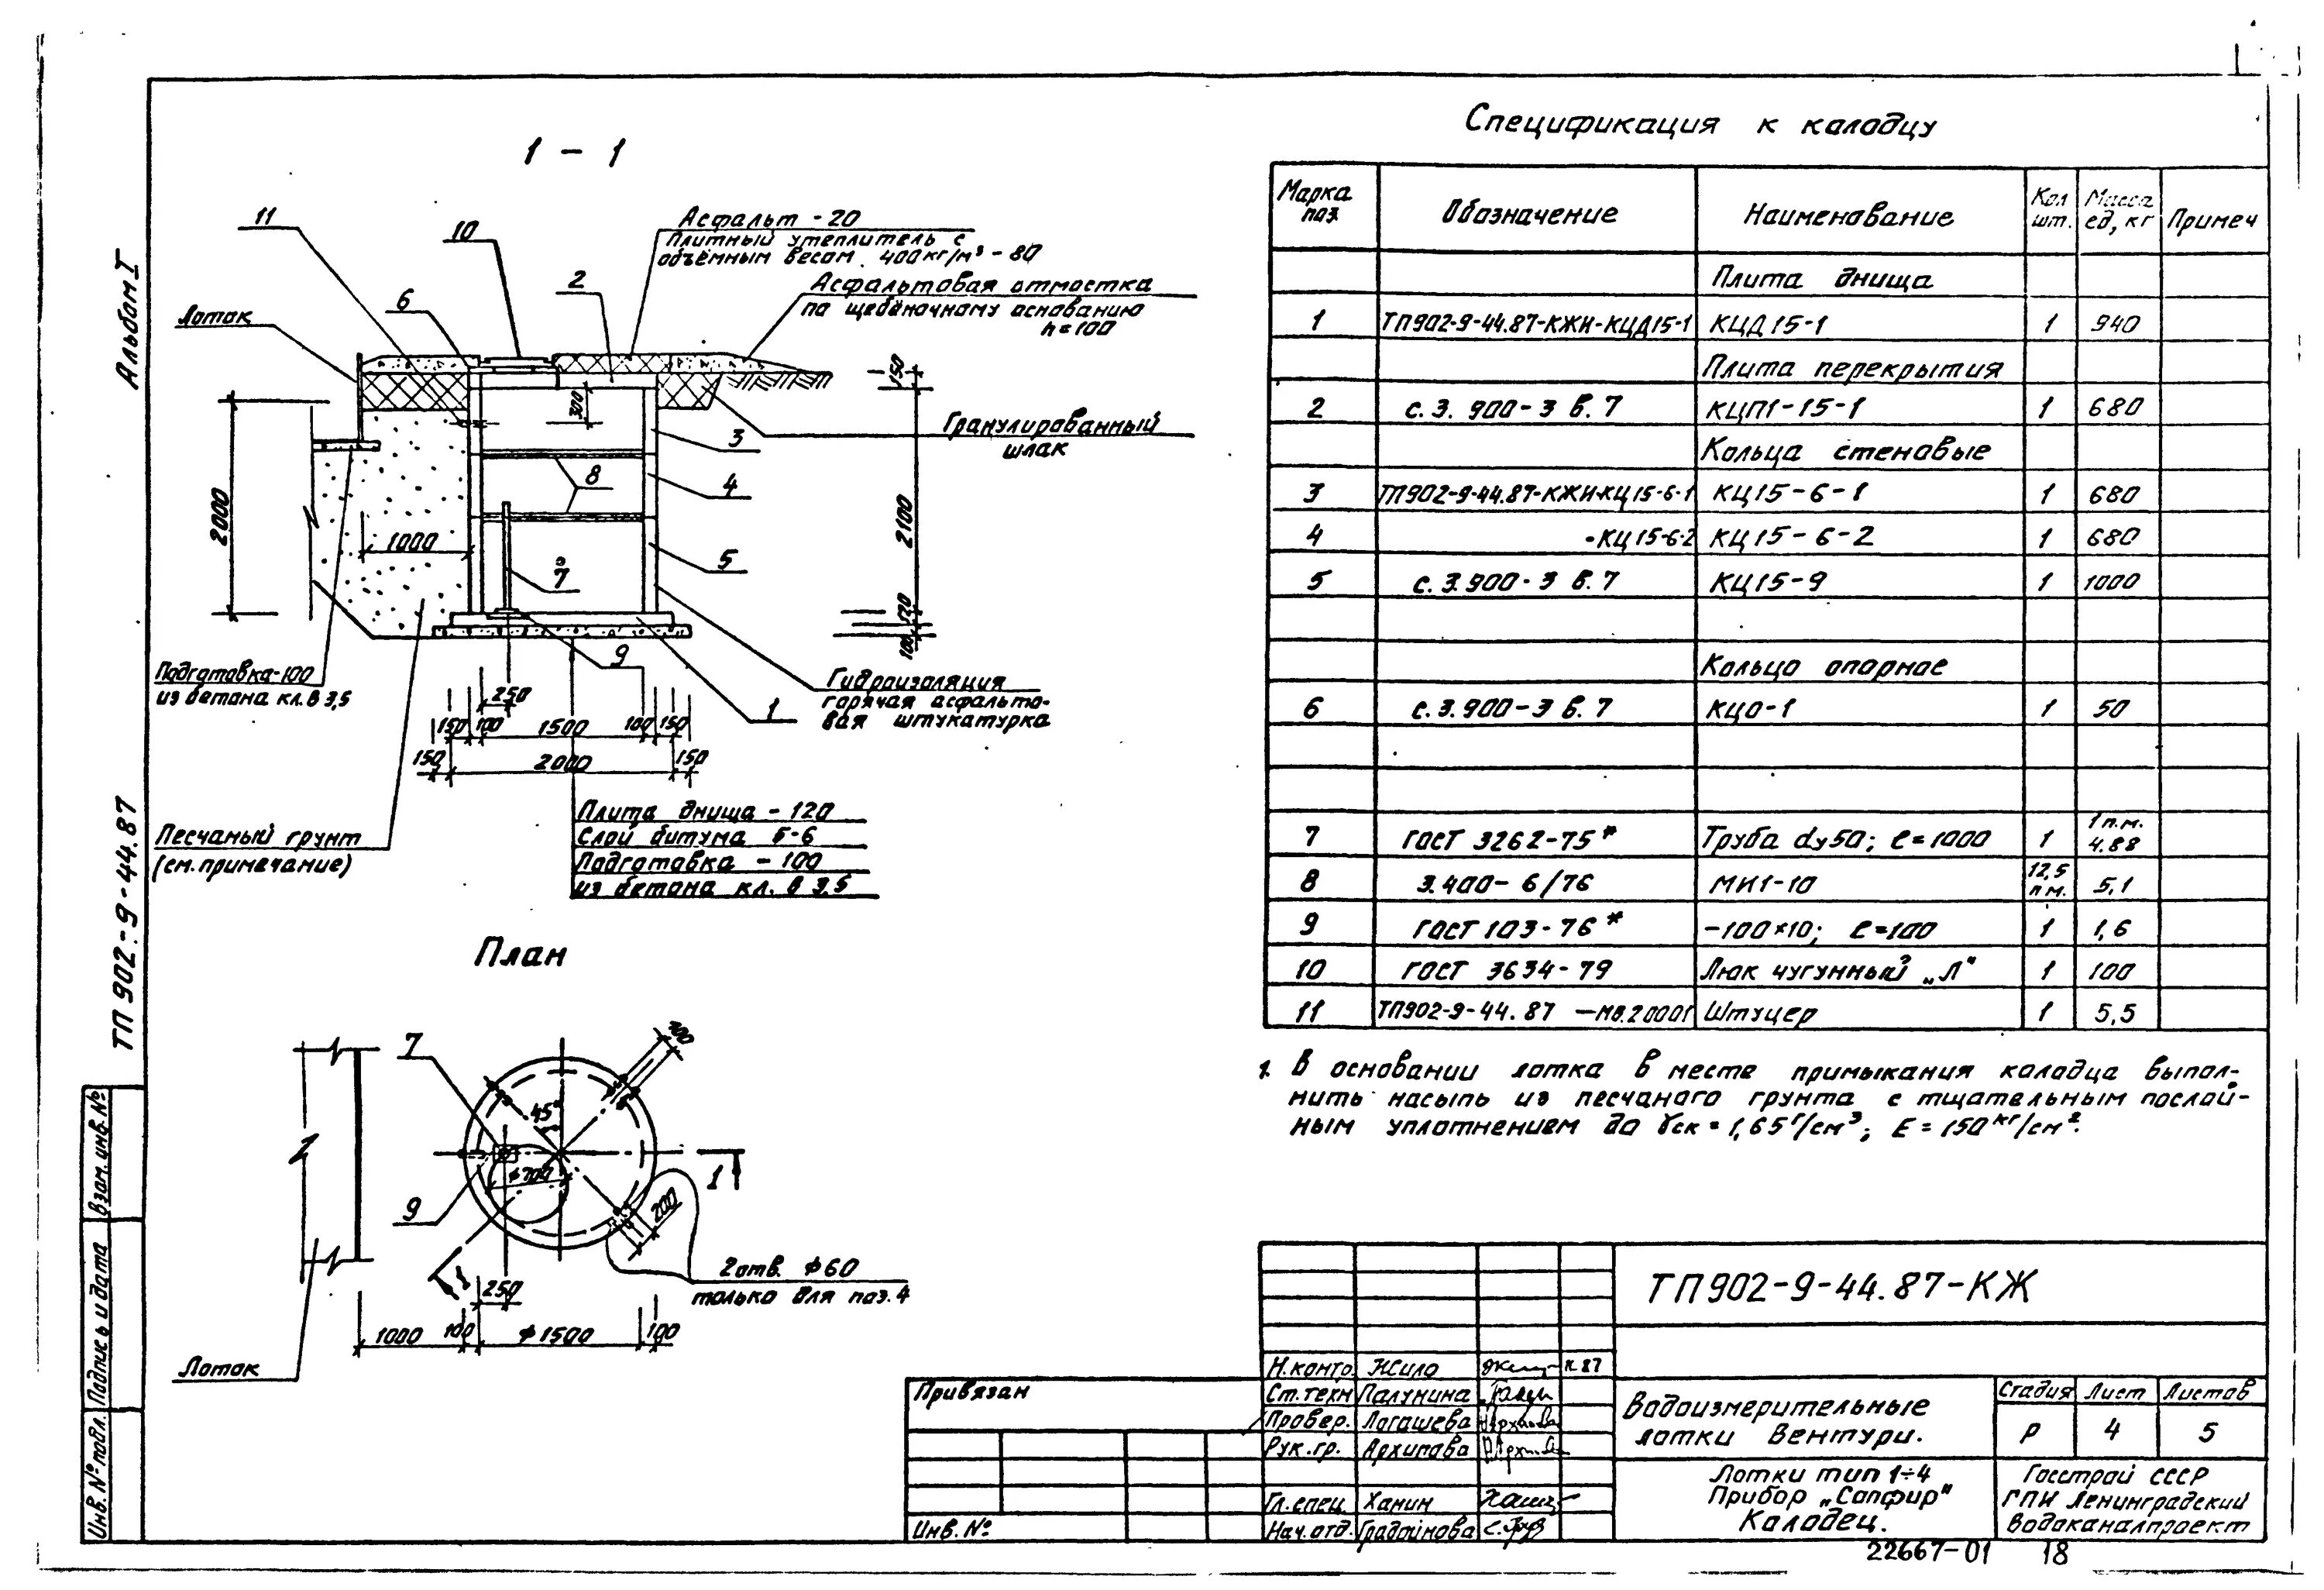 Альбом I
ТП 902-9-44.87
Взам. инв. №
Подпись и дата
Инв. № подл.
1 - 1
11
10
Асфальт - 20
Плитный утеплитель с
объёмным весом 400 кг/м³ - 80
2
6
Асфальтовая отмостка
по щебёночному основанию
h = 100
Лоток
150
300
3
Гранулированный
шлак
8
4
2000
2100
1000
5
7
120
100
9
Подготовка-100
из бетона кл. В 3,5
Гидроизоляция
горячая асфальто-
вая штукатурка
1
250
150 100 1500 100 150
150 2000 150
Плита днища - 120
Слой битума Б-6
Подготовка - 100
из бетона кл. В 3,5
Песчаный грунт
(см. примечание)
План
7
200
45°
ф700
1
9
200
1
2 отв. ф60
только для поз. 4
250
1000 100 ф1500 100
Лоток
Спецификация к колодцу
Марка поз. Обозначение Наименование Кол шт. Масса ед, кг Примеч
Плита днища
1 ТП902-9-44.87-КЖИ-КЦД15-1 КЦД15-1 1 940
Плита перекрытия
2 с. 3. 900-3 в. 7 КЦП1-15-1 1 680
Кольца стеновые
3 ТП902-9-44.87-КЖИ-КЦ15-6-1 КЦ15-6-1 1 680
4 -КЦ15-6-2 КЦ15-6-2 1 680
5 с. 3.900-3 в. 7 КЦ15-9 1 1000
Кольцо опорное
6 с. 3.900-3 в. 7 КЦО-1 1 50
7 ГОСТ 3262-75* Труба dу50; ℓ=1000 1 1 п.м. 4.88
8 3.400-6/76 МИ1-10 12,5 п.м. 5,1
9 ГОСТ 103-76* -100×10; ℓ=100 1 1,6
10 ГОСТ 3634-79 Люк чугунный „Л" 1 100
11 ТП902-9-44.87 -МВ.20001 Штуцер 1 5,5
1. В основании лотка в месте примыкания колодца выпол-
нить насыпь из песчаного грунта с тщательным послой-
ным уплотнением до γск = 1,65 г/см³; Е = 150 кг/см².
ТП902-9-44.87-КЖ
Н.контр. Жило 87
Ст.техн Палунина
Провер. Логашева
Рук.гр. Архипова
Гл.спец. Ханин
Нач.отд. Градойнова
Привязан
Инв. №
Водоизмерительные
лотки Вентури.
Стадия Лист Листов
Р 4 5
Лотки тип 1÷4
Прибор „Сапфир"
Колодец.
Госстрой СССР
ГПИ Ленинградский
Водоканалпроект
22667-01 18